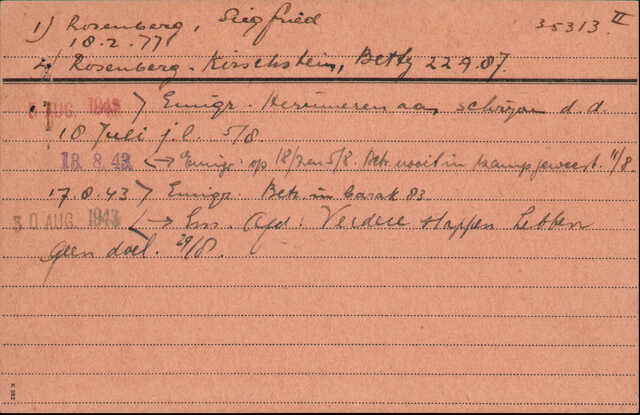 1) Rosenberg, Siegfried 35313 II
18.2.77
2) Rosenberg-Kirschstein, Betty 22.9.87.
AUG. 1943 > Emigr. Herinneren aan schrijven d.d.
18 Juli j.l. 5/8
18.8.43 <-> Emigr: op 18/7 en 5/8. Betr. nooit in kamp geweest. 11/8
17.8.43 > Emigr. Betr. in barak 83
30 AUG. 1943 <-> Em. Afd: Verdere stappen hebben
geen doel. 29/8.
K 362